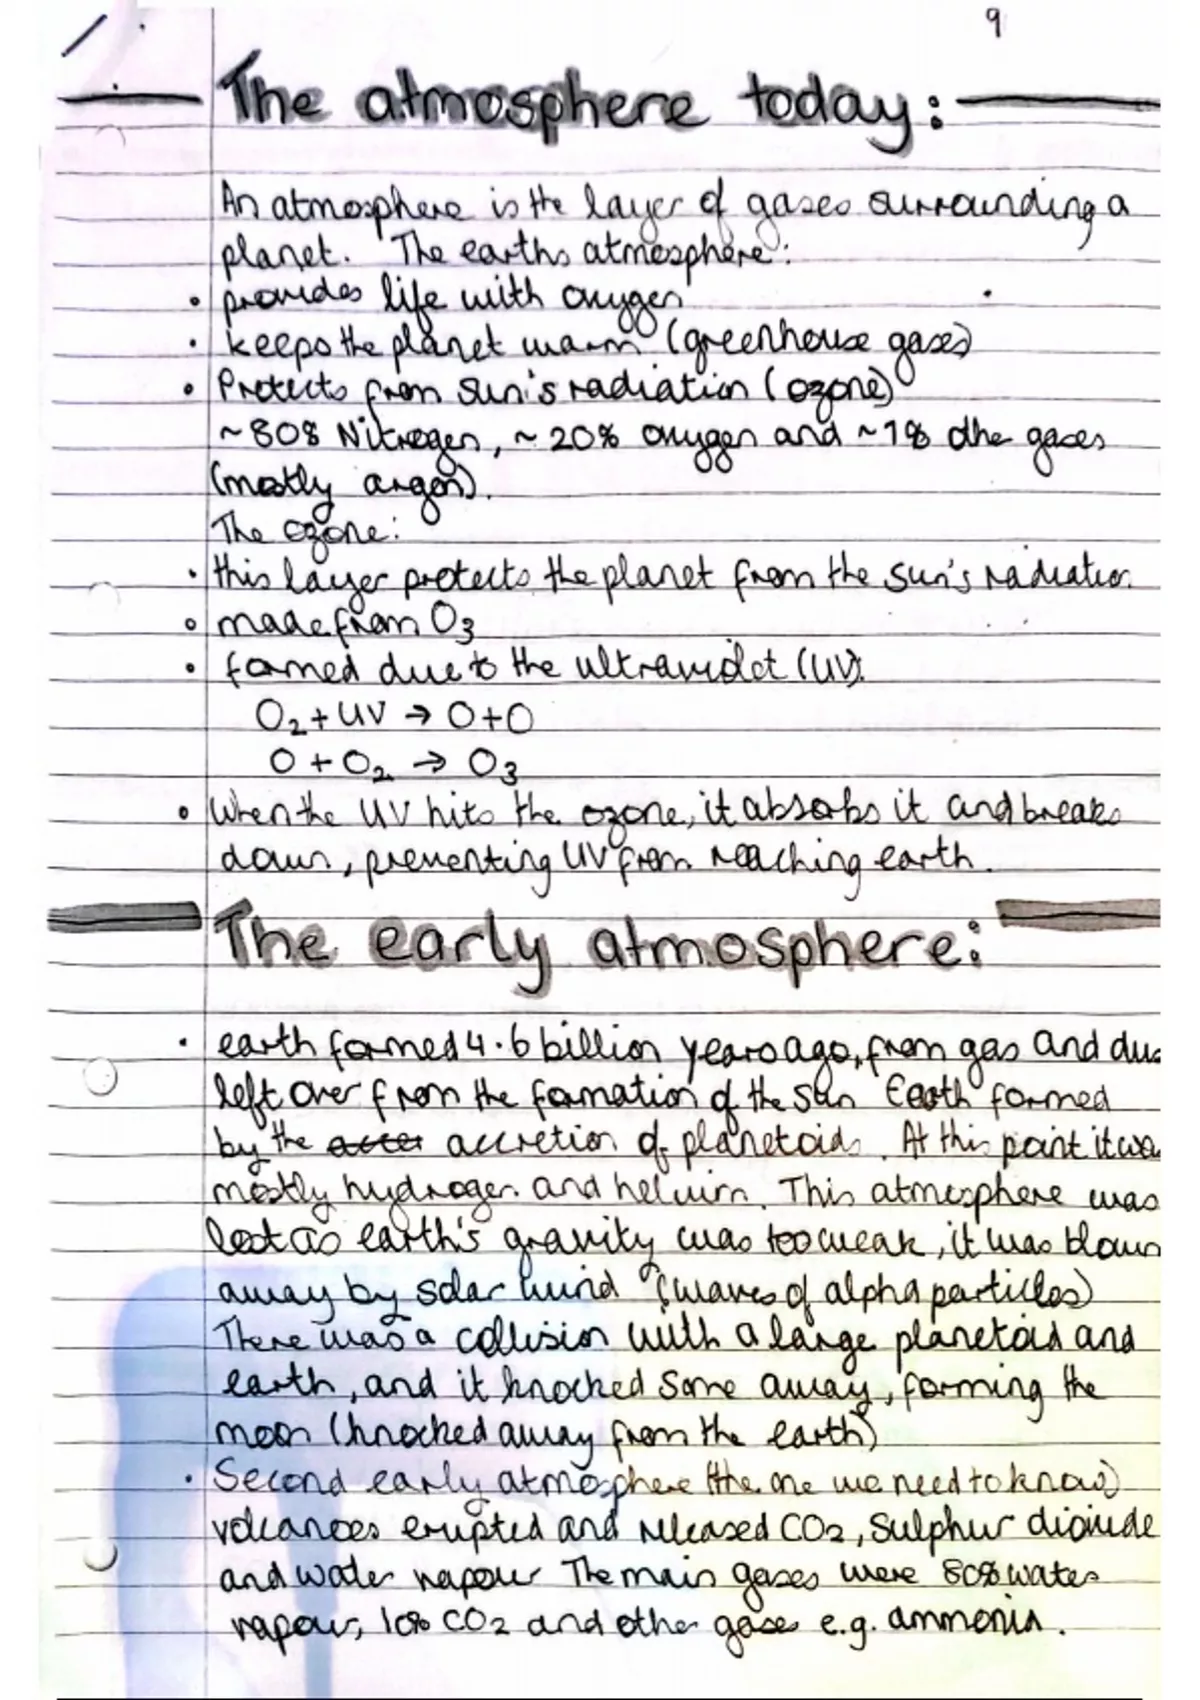 9
The atmosphere today:
An atmosphere is the layer of gases surrounding a
planet. The earths atmosphere:
• provides life with oxygen
• keeps the planet warm (greenhouse gases)
• Protects from Sun's radiation (ozone)
~80% Nitrogen, ~20% oxygen and ~1% othe gases
(mostly argon).
The ozone:
• this layer protects the planet from the sun's radiation
• made from O3
• formed due to the ultraviolet (UV).
O2 + UV → O+O
O + O2 → O3
• When the UV hits the ozone, it absorbs it and breaks
down, preventing UV from reaching earth.
The early atmosphere:
• earth formed 4.6 billion years ago, from gas and dus
left over from the formation of the sun Earth formed
by the accretion of planetoids. At this point it wa
mostly hydrogen and helium. This atmosphere was
lost as earth's gravity was too weak, it was blown
away by solar wind (waves of alpha particles)
There was a collision with a large planetoid and
earth, and it knocked some away, forming the
moon (knocked away from the earth)
• Second early atmosphere (the one we need to know)
volcanoes erupted and released CO2, Sulphur dioxide
and water vapour The main gases were 80% water
vapour, 10% CO2 and other gases e.g. ammonia.